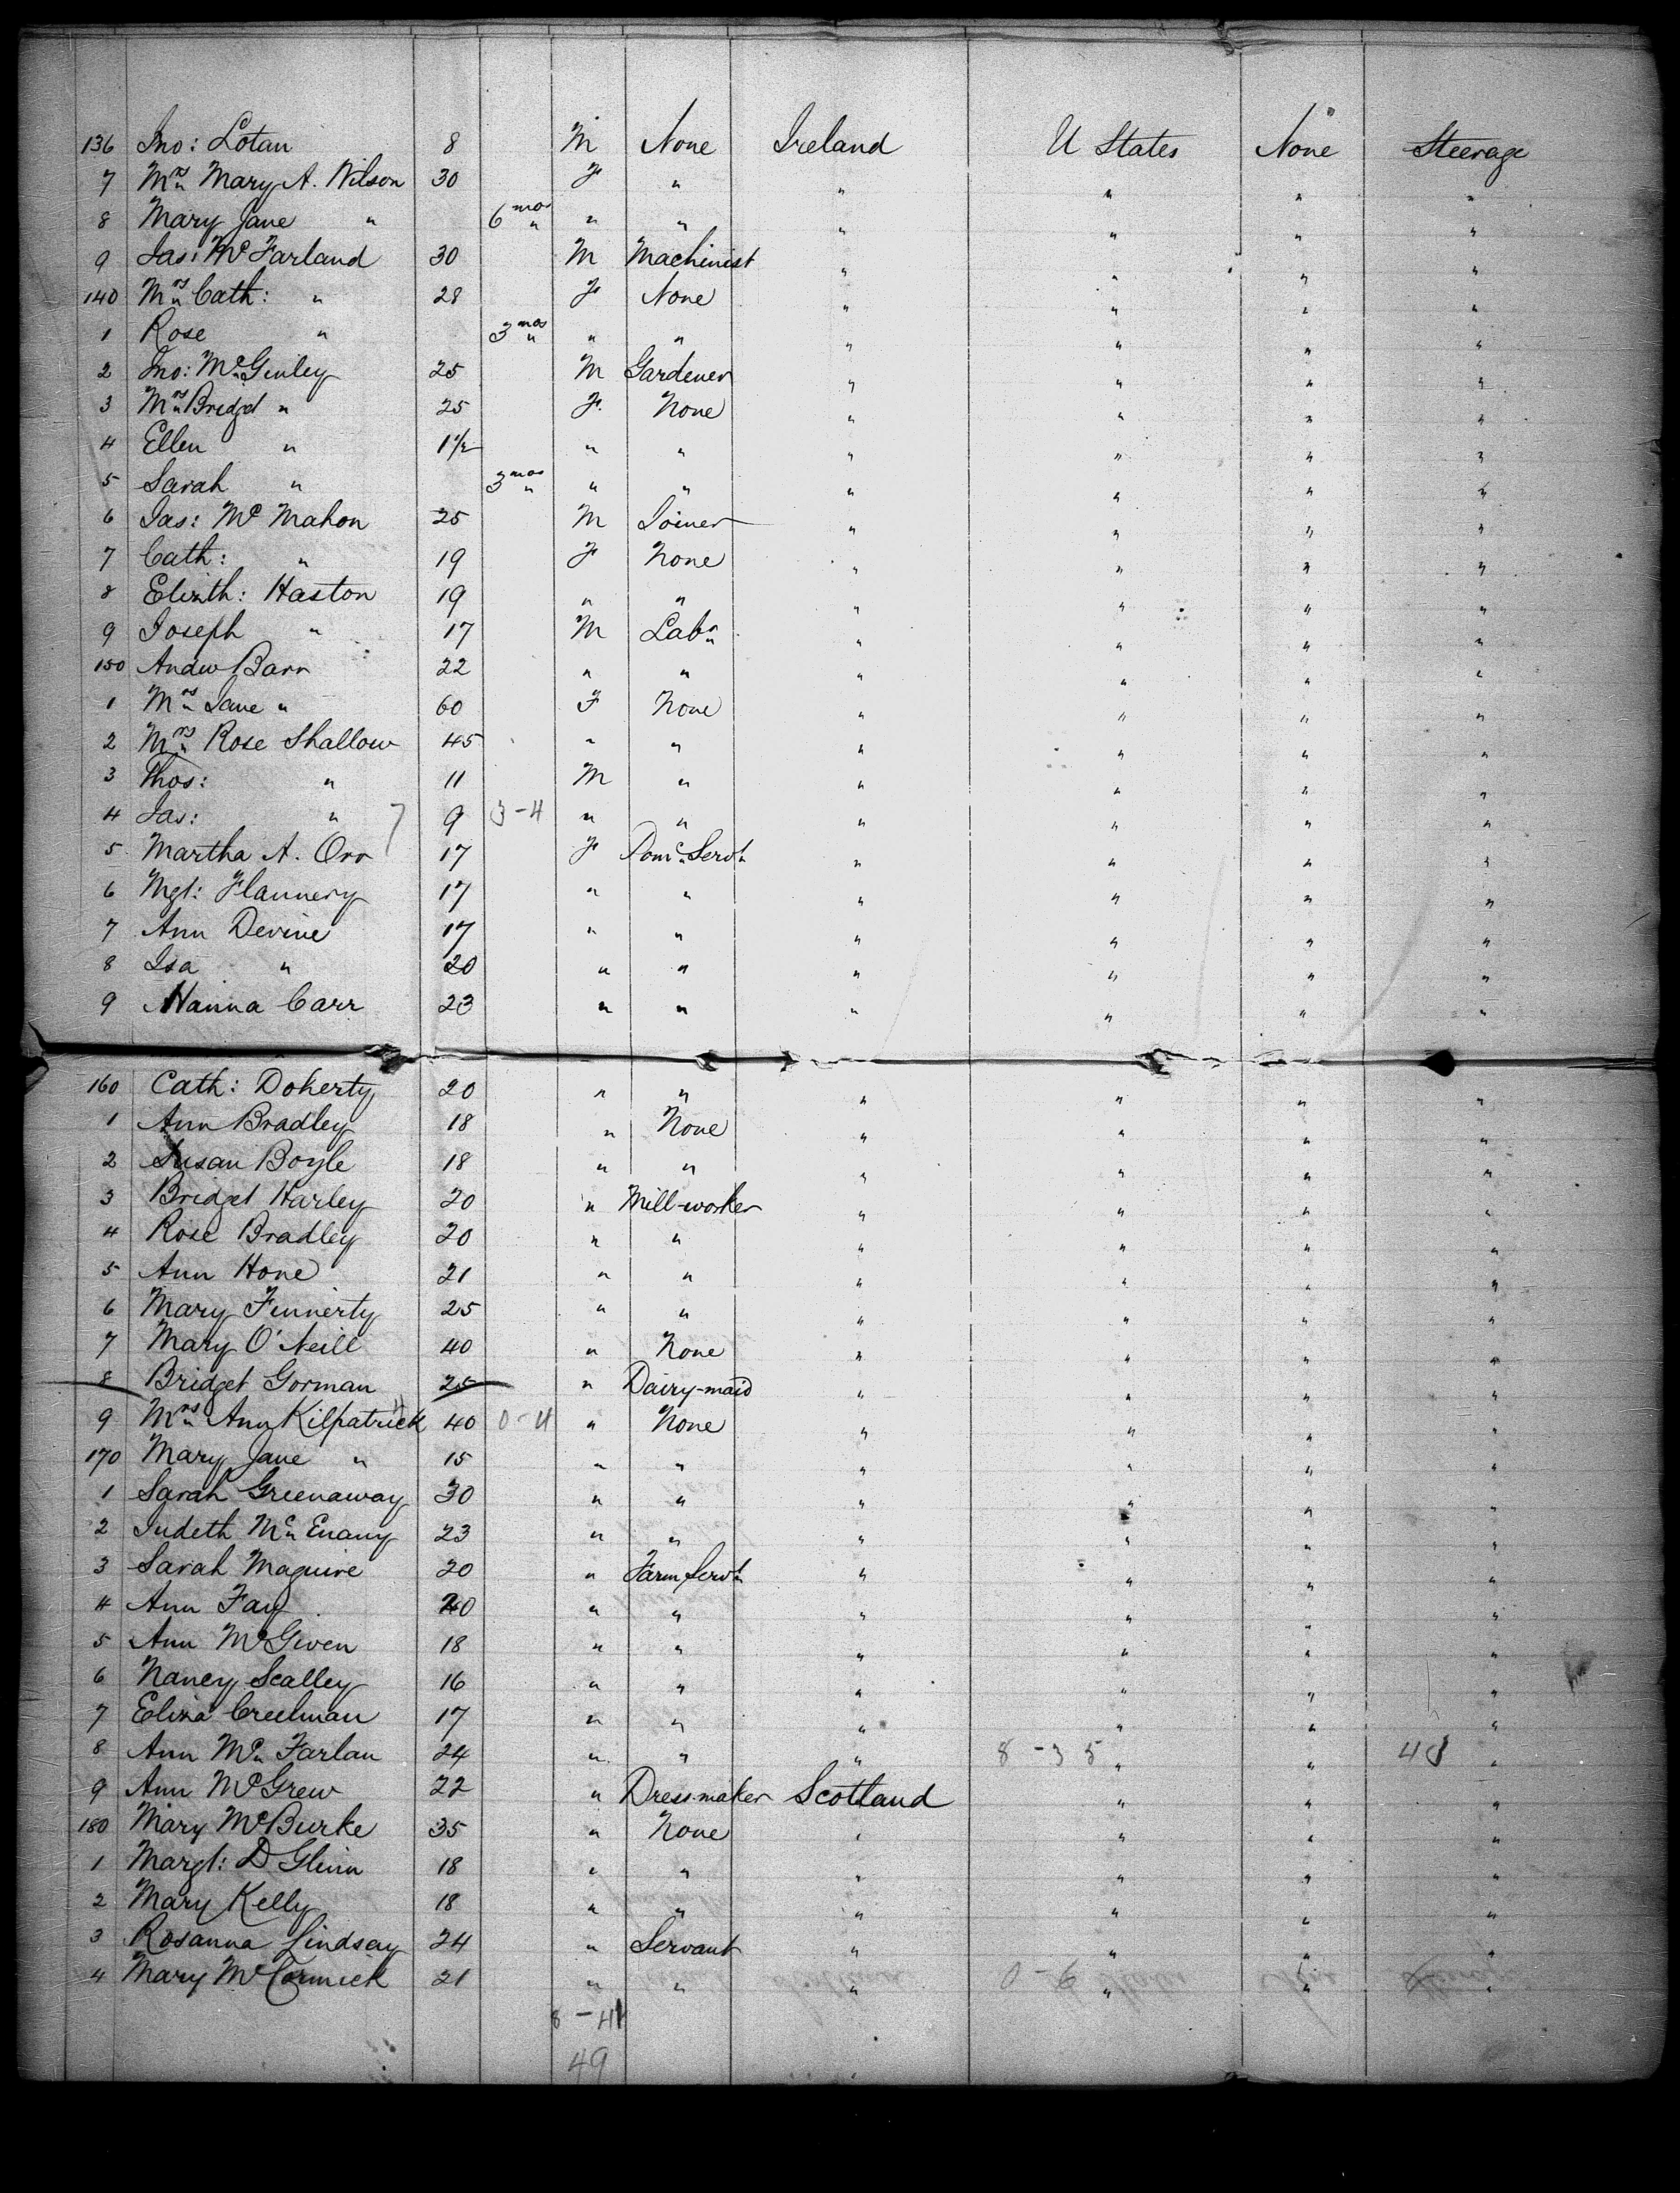 136 Jno: Lotan 8 M None Ireland U States None Steerage
7 Mrs Mary A. Wilson 30 F " " " " "
8 Mary Jane " 6 mos " " " " " "
9 Jas: McFarland 30 M Machinist " " " "
140 Mrs Cath: " 28 F None " " " "
1 Rose " 3 mos " " " " " "
2 Jno: McGinley 25 M Gardener " " " "
3 Mrs Bridget " 25 F. None " " " "
4 Ellen " 1 1/2 " " " " " "
5 Sarah " 3 mos " " " " " "
6 Jas: Mc Mahon 25 M Joiner " " " "
7 Cath: " 19 F None " " " "
8 Elizth: Haston 19 " " " " " "
9 Joseph " 17 M Labr " " " "
150 Andw Barr 22 " " " " " "
1 Mrs Jane " 60 F None " " " "
2 Mrs Rose Shallow 45 " " " " " "
3 Thos: " 11 M " " " " "
4 Jas: " 7 9 3-4 " " " " " "
5 Martha A. Orr 17 F Domc Servt " " " "
6 Mgt: Flannery 17 " " " " " "
7 Ann Devine 17 " " " " " "
8 Isa " 20 " " " " " "
9 Hanna Carr 23 " " " " " "
160 Cath: Doherty 20 " " " " " "
1 Ann Bradley 18 " None " " " "
2 Susan Boyle 18 " " " " " "
3 Bridget Harley 20 " Mill-worker " " " "
4 Rose Bradley 20 " " " " " "
5 Ann Hone 21 " " " " " "
6 Mary Finnerty 25 " " " " " "
7 Mary O'Neill 40 " None " " " "
8 Bridget Gorman 25 " Dairy-maid " " " "
9 Mrs Ann Kilpatrick 40 0-4 " None " " " "
170 Mary Jane " 15 " " " " " "
1 Sarah Greenaway 30 " " " " " "
2 Judeth Mc Enany 23 " " " " " "
3 Sarah Maguire 20 " Farm Servt " " " "
4 Ann Fay 20 " " " " " "
5 Ann McGwen 18 " " " " " "
6 Nancy Scalley 16 " " " " " "
7 Eliza Creelman 17 " " " " " "
8 Ann Mc Farlan 24 " " " 8-35 " " 48 "
9 Ann McGrew 22 " Dressmaker Scotland " " "
180 Mary McBurke 35 " None " " " "
1 Margt: D Glinn 18 " " " " " "
2 Mary Kelly 18 " " " " " "
3 Rosanna Lindsay 24 " Servant " " " "
4 Mary McCormick 21 " " " 0-6 " " "
8-41
49